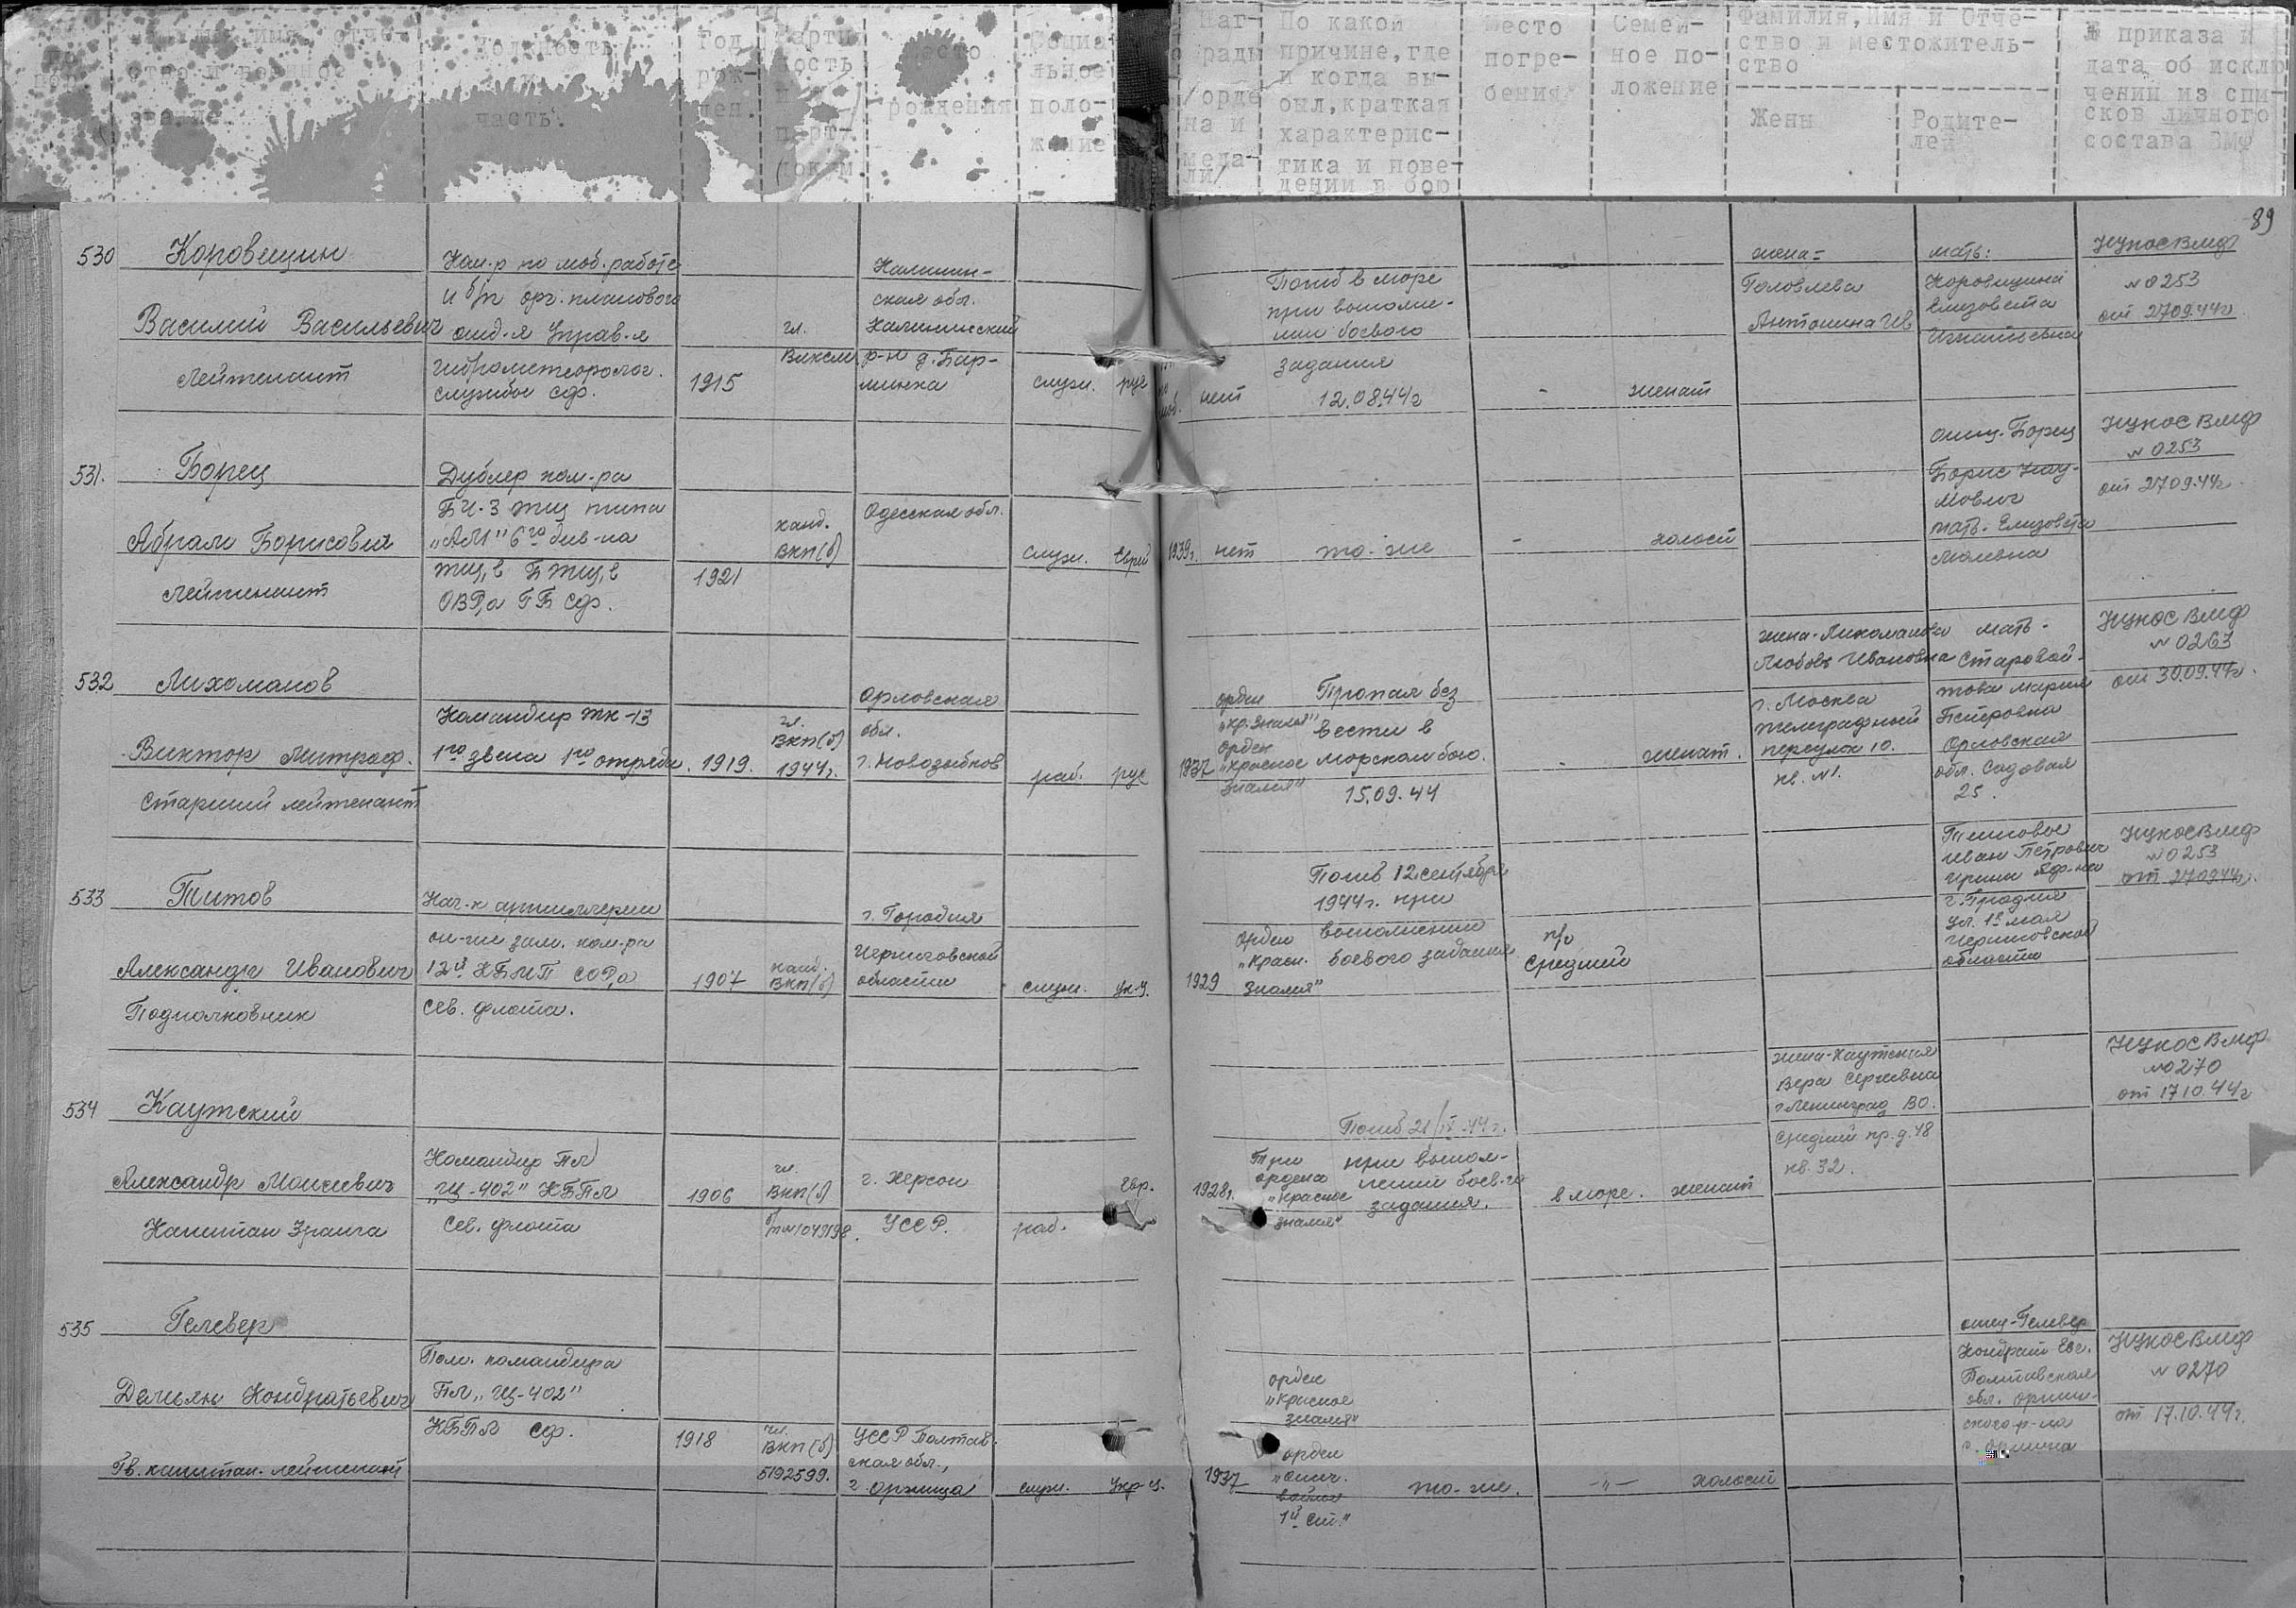 имя, отче-
ство и военное
звание
Должность
и
часть.
Год
рож-
ден.
Парти
ность
и №
парт-
док-м.
Место
рождения
Социа
льное
поло-
жение
Наг-
рады
/орде
на и
меда-
ли/
По какой
причине, где
и когда вы-
был, краткая
характерис-
тика и пове-
дении в бою
Место
погре-
бения
Семей-
ное по-
ложение
Фамилия, Имя и Отче-
ство и местожитель-
ство
Жены
Родите-
лей
№ приказа и
дата об исклю
чении из спи-
сков личного
состава ВМФ
89
530
Коровещин
Василий Васильевич
Лейтенант
Пом-р по моб. работе
и б/п орг. планового
отд-я Управ-я
гидрометеоролог.
службы СФ.
1915
чл.
ВЛКСМ
Калинин-
ская обл.
Калининский
р-н д. Бар-
минка
служ.
рус
нет
Погиб в море
при выполне-
нии боевого
задания
12.08.44г
-
женат
жена=
Головлева
Антонина Ив
мать:
Коровещина
Елизовета
Игнатьевна
НУКОС ВМФ
№ 0253
от 27.09.44г
531.
Борец
Абрам Борисович
Лейтенант
Дублер ком-ра
БЧ-3 ТЩ типа
"АМ" 6го див-на
ТЩ,в БТЩ,в
ОВР,а ГБ СФ.
1921
канд.
ВКП(б)
Одесская обл.
служ.
Еврей
1939г.
нет
то-же
-
холост
отец-Борец
Борис Нау-
мович
мать-Елизовета
НУКОС ВМФ
№ 0253
от 27.09.44г.
532
Лихоманов
Виктор Митроф.
Старший лейтенант
Командир ТК-13
1го звена 1го отряда.
1919.
чл.
ВКП(б)
1944г.
Орловская
обл.
г. Новозыбков
раб.
рус
1937
орден
"Кр. Знамя"
орден
"Красное
знамя"
Пропал без
вести в
морском бою.
15.09.44
-
женат.
жена-Лихоманова
Любовь Ивановна
г. Москва
Телеграфный
переулок 10.
кв. №1.
мать-
Старовой-
това Мария
Петровна
Орловская
обл. Садовая
25.
НУКОС ВМФ
№ 0263
от 30.09.44г.
533
Титов
Александр Иванович
Подполковник
Нач-к артиллерии
он-же зам. ком-ра
12й КБМП СОР,а
Сев. флота.
1907
канд.
ВКП(б)
г. Городня
Черниговской
области
служ.
Ук-ц.
1929
орден
"Красн.
знамя"
Погиб 12 сентября
1944г. при
выполнении
боевого задания
п/о
Средний
Титовы
Иван Петрович
г. Городня
ул. 1е мая
Черниговской
области
НУКОС ВМФ
№ 0253
от 27.09.44г.
534
Каутский
Александр Моисеевич
Капитан 3 ранга
Командир ПЛ
"Щ-402" КБПЛ
Сев. флота
1906
чл.
ВКП(б)
г. Херсон
УССР.
раб.
Евр.
1928г.
Три
ордена
"Красное
знамя"
Погиб 21/IX.44г.
при выпол-
нении боев-го
задания.
в море.
женат
жена-Каутская
Вера Сергеевна
г. Ленинград ВО.
Средний пр. д. 48
кв. 32.
НУКОС ВМФ
№ 0270
от 17.10.44г
535
Гелевер
Демьян Кондратьевич
Гв. капитан-лейтенант
Пом. командира
ПЛ "Щ-402"
КБПЛ СФ.
1918
чл.
ВКП(б)
5192599.
УССР Полтав.
ская обл.,
г. Оржица
служ.
Укр-ц.
1937
орден
"Красное
знамя"
орден
"Отеч.
войны
1й ст."
то-же.
-"-
холост
отец-Гелевер
Кондрат Евс.
Полтавская
обл. Оржи-
ского р-на
НУКОС ВМФ
№ 0270
от 17.10.44г.